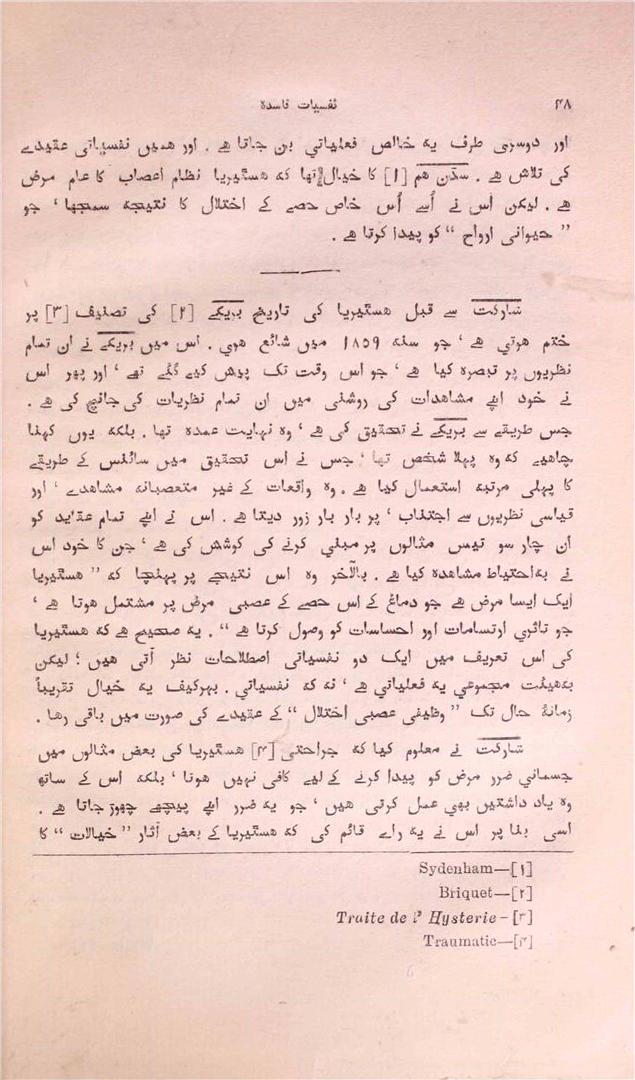 ۴۸ نفسیات فاسدہ
اور دوسری طرف یہ خالص فعلیاتي بن جاتا ہے . اور ہمیں نفسیاتی عقیدے
کی تلاش ہے . سڈن ہم [۱] کا خیال تھا کہ ہسٹیریا نظام اعصاب کا عام مرض
ہے . لیکن اس نے اُسے اُس خاص حصے کے اختلال کا نتیجہ سمجھا ' جو
” حیوانی ارواح “ کو پیدا کرتا ہے .
شارکٹ سے قبل ہسٹیریا کی تاریخ بریکے [۲] کی تصنیف [۳] پر
ختم ہوتی ہے ' جو سنہ ۱۸۵۹ میں شائع ہوي . اس میں بریکے نے ان تمام
نظریوں پر تبصرہ کیا ہے ' جو اس وقت تک پیش کیے گئے تھے ' اور پھر اس
نے خود اپنے مشاہدات کی روشنی میں ان تمام نظریات کی جانچ کی ہے .
جس طریقے سے بریکے نے تحقیق کی ہے ' وہ نہایت عمدہ تھا . بلکہ یوں کہنا
چاہیے کہ وہ پہلا شخص تھا ' جس نے اس تحقیق میں سائنس کے طریقے
کا پہلی مرتبہ استعمال کیا ہے . وہ واقعات کے غیر متعصبانہ مشاہدے ' اور
قیاسی نظریوں سے اجتناب ' پر بار بار زور دیتا ہے . اس نے اپنے تمام عقاید کو
ان چار سو تیس مثالوں پر مبنی کرنے کی کوشش کی ہے ' جن کا خود اس
نے بہ احتیاط مشاہدہ کیا ہے . بالآخر وہ اس نتیجے پر پہنچا کہ ” ہسٹیریا
ایک ایسا مرض ہے جو دماغ کے اس حصے کے عصبی مرض پر مشتمل ہوتا ہے '
جو تاثري ارتسامات اور احساسات کو وصول کرتا ہے “ . یہ صحیح ہے کہ ہسٹیریا
کی اس تعریف میں ایک دو نفسیاتی اصطلاحات نظر آتی ہیں ؛ لیکن
بہ ہیئت مجموعي یہ فعلیاتی ہے ' نہ کہ نفسیاتی . بہر کیف یہ خیال تقریباً
زمانۂ حال تک ” وظیفی عصبی اختلال “ کے عقیدے کی صورت میں باقی رہا .
شارکٹ نے معلوم کیا کہ جراحتی [۴] ہسٹیریا کی بعض مثالوں میں
جسمانی ضرر مرض کو پیدا کرنے کے لیے کافی نہیں ہوتا ' بلکہ اس کے ساتھ
وہ یاد داشتیں بھی عمل کرتی ہیں ' جو یہ ضرر اپنے پیچھے چھوڑ جاتا ہے .
اسی بنا پر اس نے یہ راے قائم کی کہ ہسٹیریا کے بعض آثار ” خیالات “ کا
Sydenham—[۱]
Briquet—[۲]
Traite de l' Hysterie - [۳]
Traumatic—[۴]